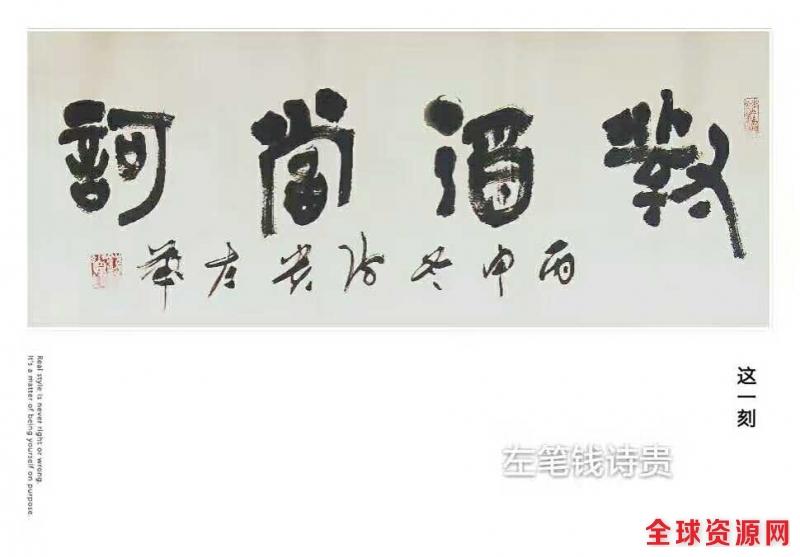 對酒當訶
丙申冬诗贵左筆
这一刻
Real style is never right or wrong.
It's a matter of being yourself on purpose.
左笔钱诗贵
全球资源网